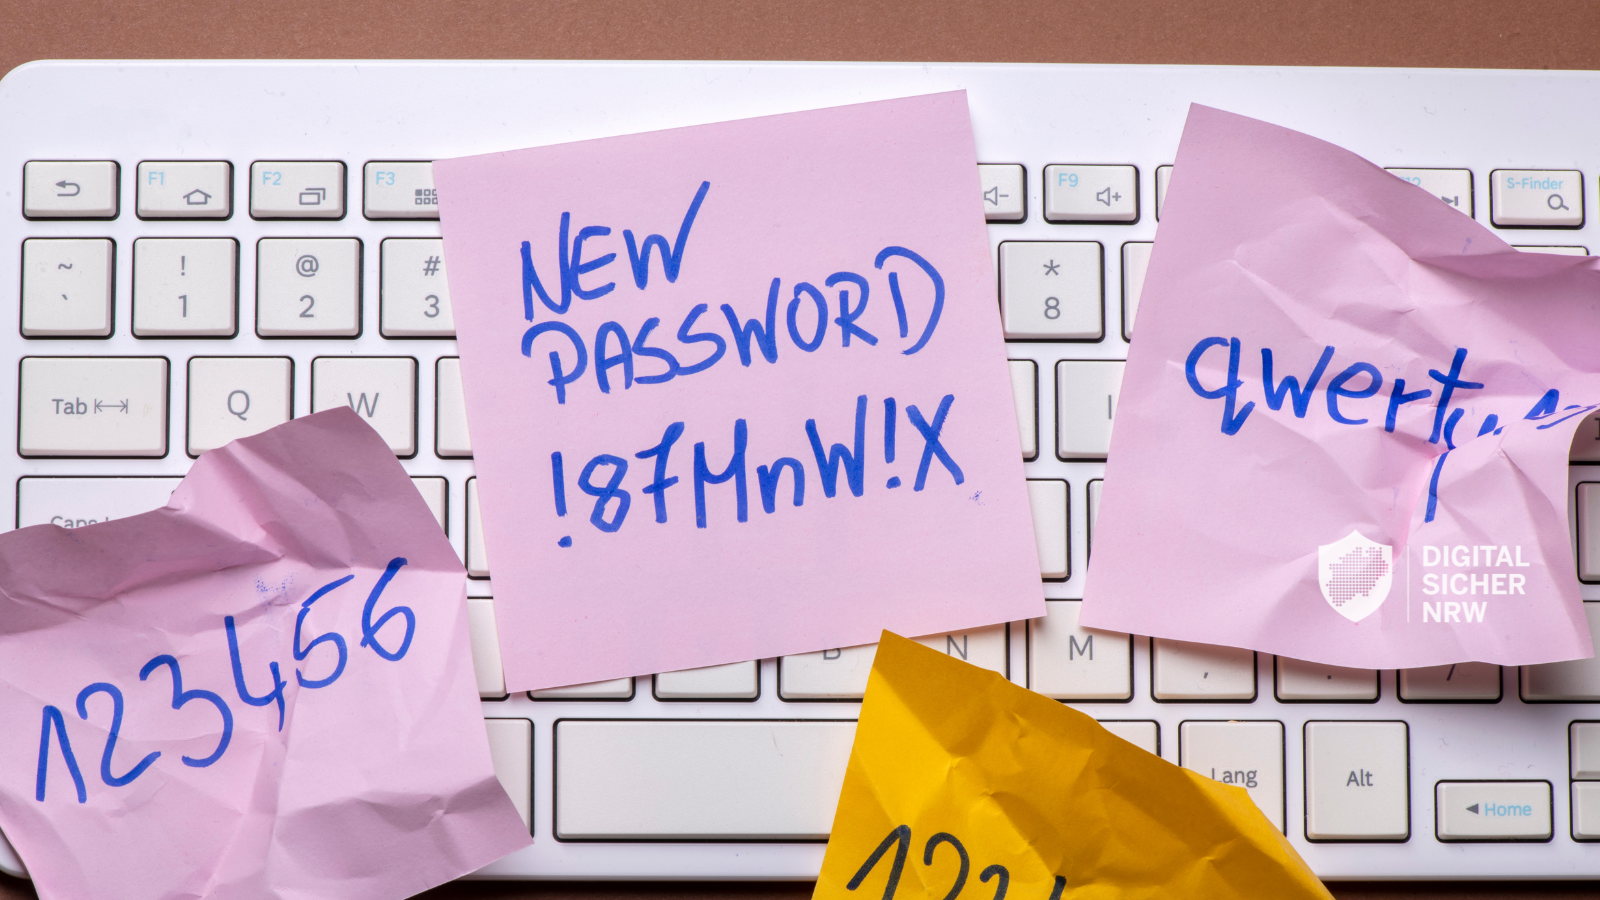 NEW
PASSWORD
!87MnW!X
123456
F1
F2
F3
F9
S-Finder
~
`
!
1
@
2
#
3
*
8
Tab
Q
W
N
M
,
.
/
Lang
Alt
◄ Home
DIGITAL
SICHER
NRW